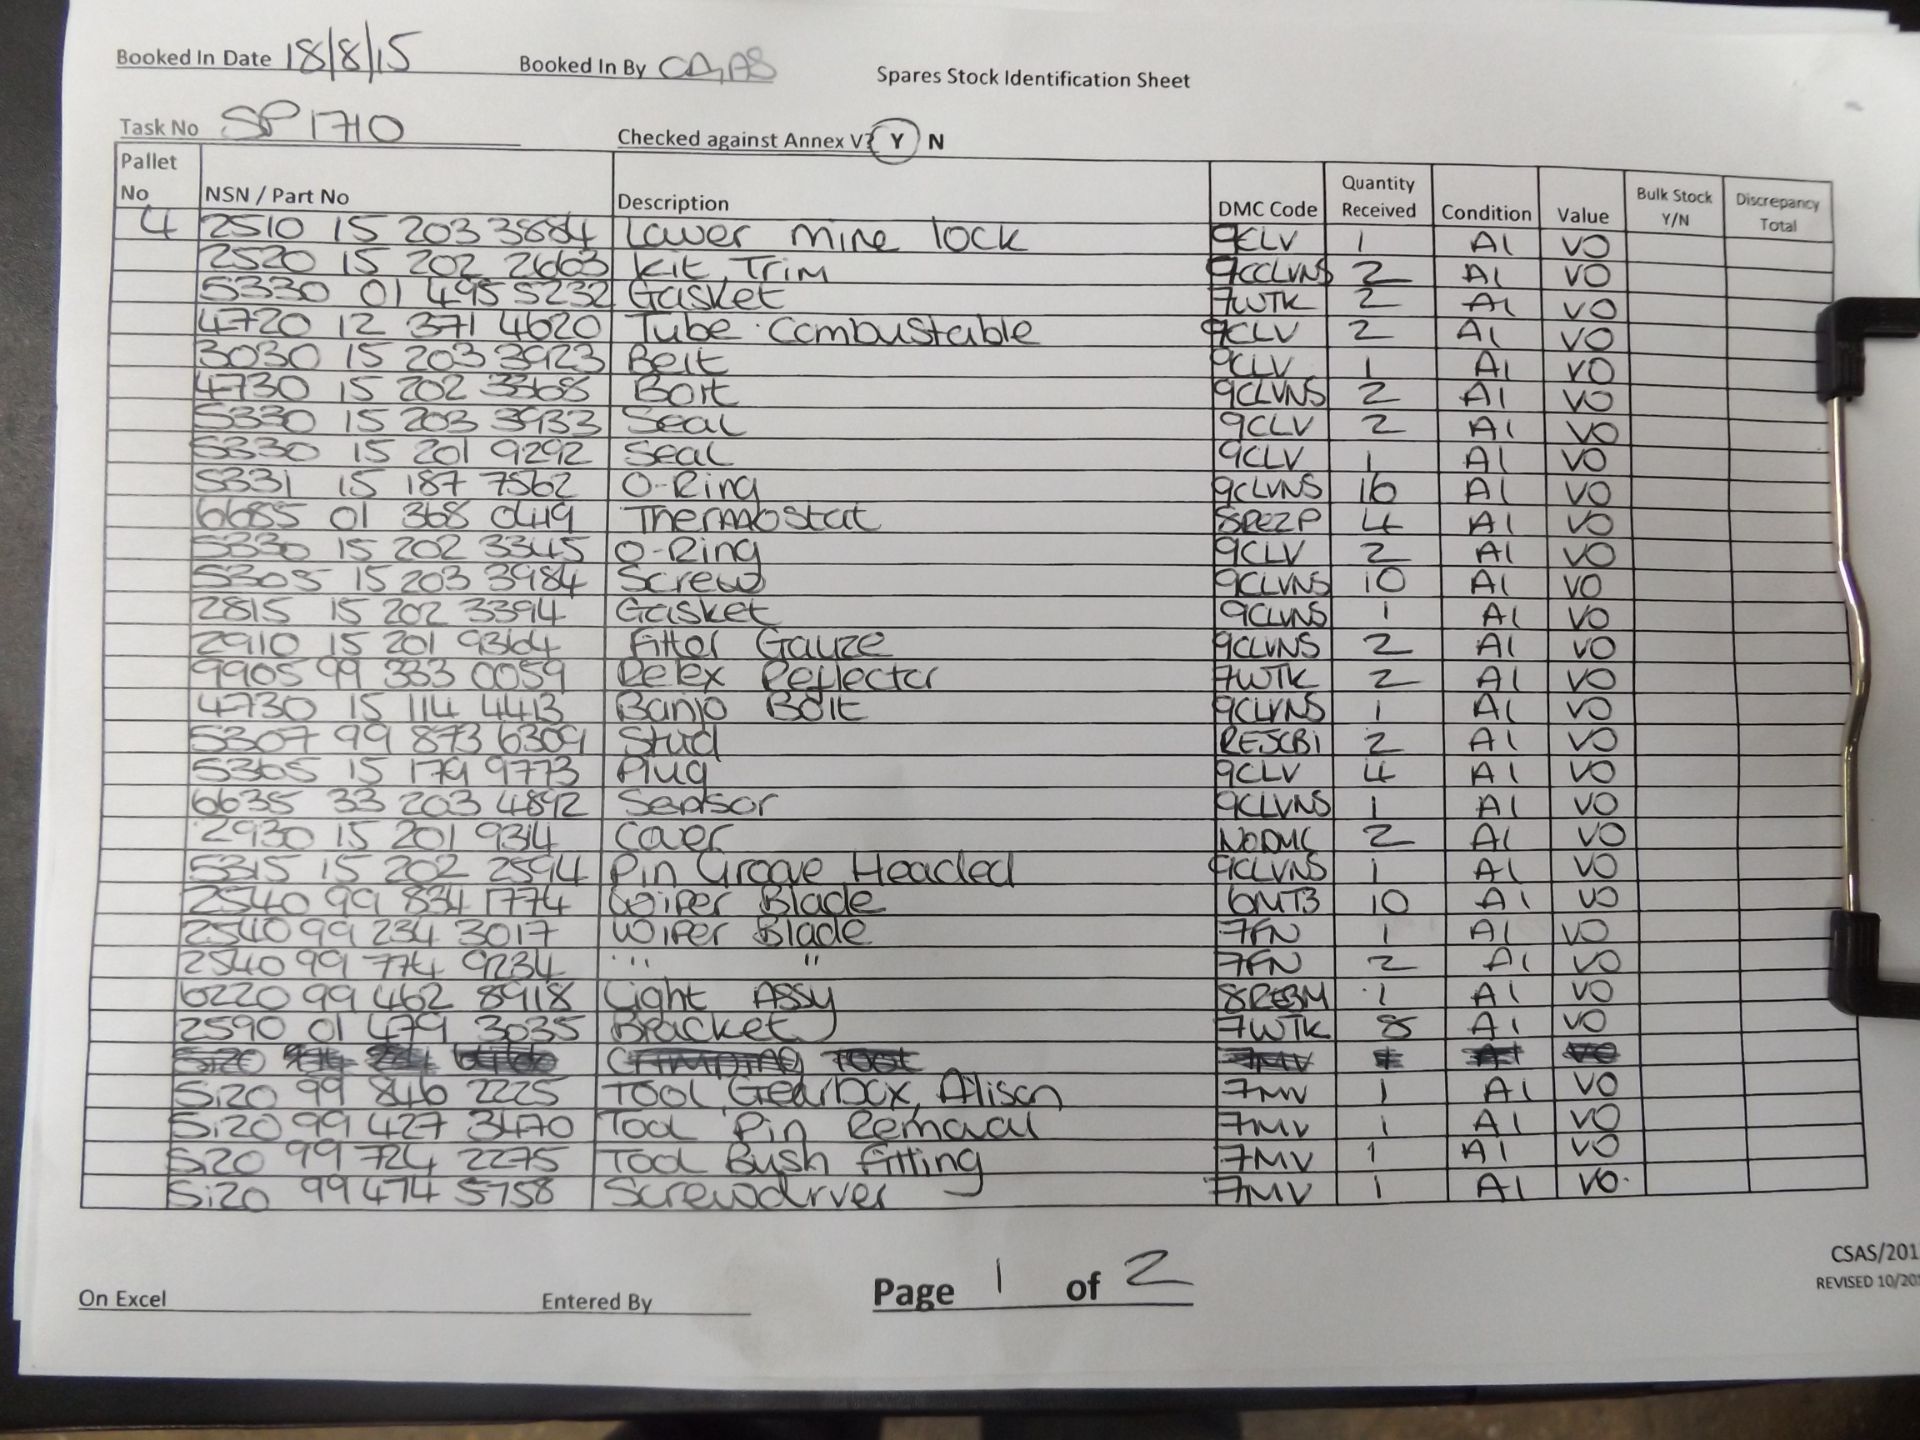 Booked In Date 18/8/15 Booked In By Spares Stock Identification Sheet
Task No SP1710 Checked against Annex V? Y N
Pallet No NSN / Part No Description DMC Code Quantity Received Condition Value Bulk Stock Y/N Discrepancy Total
4 2510 15 203 3884 Lower mine lock 9CLV 1 A1 VO
2520 15 202 2663 Kit, Trim 9CCLVNS 2 A1 VO
5330 01 495 5232 Gasket 7WTK 2 A1 VO
4720 12 371 4620 Tube Combustable 9CLV 2 A1 VO
3030 15 203 3923 Belt 9CLV 1 A1 VO
4730 15 202 3368 Bolt 9CLVNS 2 A1 VO
5330 15 203 3933 Seal 9CLV 2 A1 VO
5330 15 201 9292 Seal 9CLV 1 A1 VO
5331 15 187 7562 O-Ring 9CLVNS 16 A1 VO
6685 01 368 0419 Thermostat 8PEZP 4 A1 VO
5330 15 202 3345 O-Ring 9CLV 2 A1 VO
5305 15 203 3984 Screw 9CLVNS 10 A1 VO
2815 15 202 3394 Gasket 9CLVNS 1 A1 VO
2910 15 201 9364 Filter Gauze 9CLVNS 2 A1 VO
9905 99 333 0059 Relex Reflector 7WTK 2 A1 VO
4730 15 114 4413 Banjo Bolt 9CLVNS 1 A1 VO
5307 99 873 6309 Stud REJCB1 2 A1 VO
5365 15 179 9773 Plug 9CLV 4 A1 VO
6635 33 203 4892 Sensor 9CLVNS 1 A1 VO
2930 15 201 9314 Cover NODMC 2 A1 VO
5315 15 202 2594 Pin Groove Headed 9CLVNS 1 A1 VO
2540 99 834 1774 Wiper Blade 6MT3 10 A1 VO
2540 99 234 3017 Wiper Blade 7FN 1 A1 VO
2540 99 774 9234 " " 7FN 2 A1 VO
6220 99 462 8918 Light Assy 8REBM 1 A1 VO
2590 01 479 3035 Bracket 7WTK 8 A1 VO
5120 99 846 2225 Tool, Gearbox, Alison 7MV 1 A1 VO
5120 99 427 3470 Tool Pin Removal 7MV 1 A1 VO
5120 99 724 2275 Tool Bush fitting 7MV 1 A1 VO
5120 99 474 5758 Screwdrver 7MV 1 A1 VO
CSAS/201
REVISED 10/20
On Excel Entered By Page 1 of 2